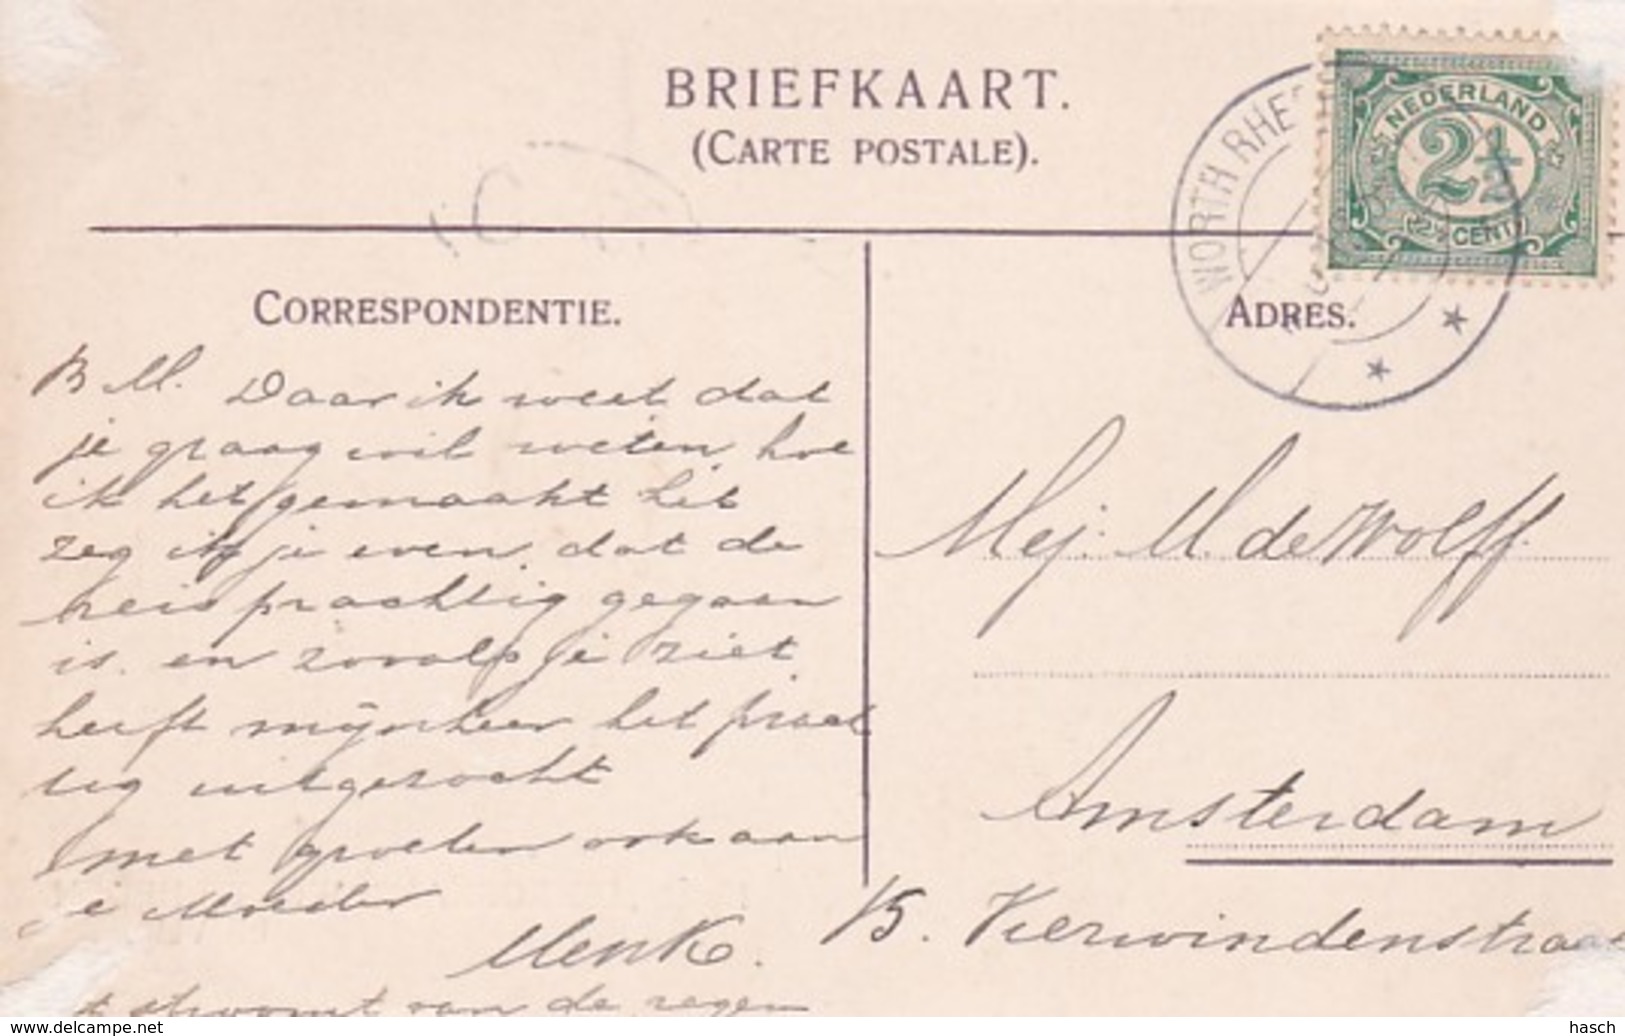 BRIEFKAART.
(CARTE POSTALE).
NEDERLAND
2½
2½ CENT
WORTH RHE
CORRESPONDENTIE.
ADRES.
B M. Daar ik weet dat
je graag wil weten, hoe
ik het gemaakt heb
zeg ik je even, dat de
reis prachtig gegaan
is. en zooals je ziet
heeft mijnheer het prach
tig uitgezocht
met groeten ook aan
je Moeder
Henk.
stroomt van de regen
Mej. M. de Wolff.
Amsterdam
15. Vierwindenstraat
www.delcampe.net
hasch